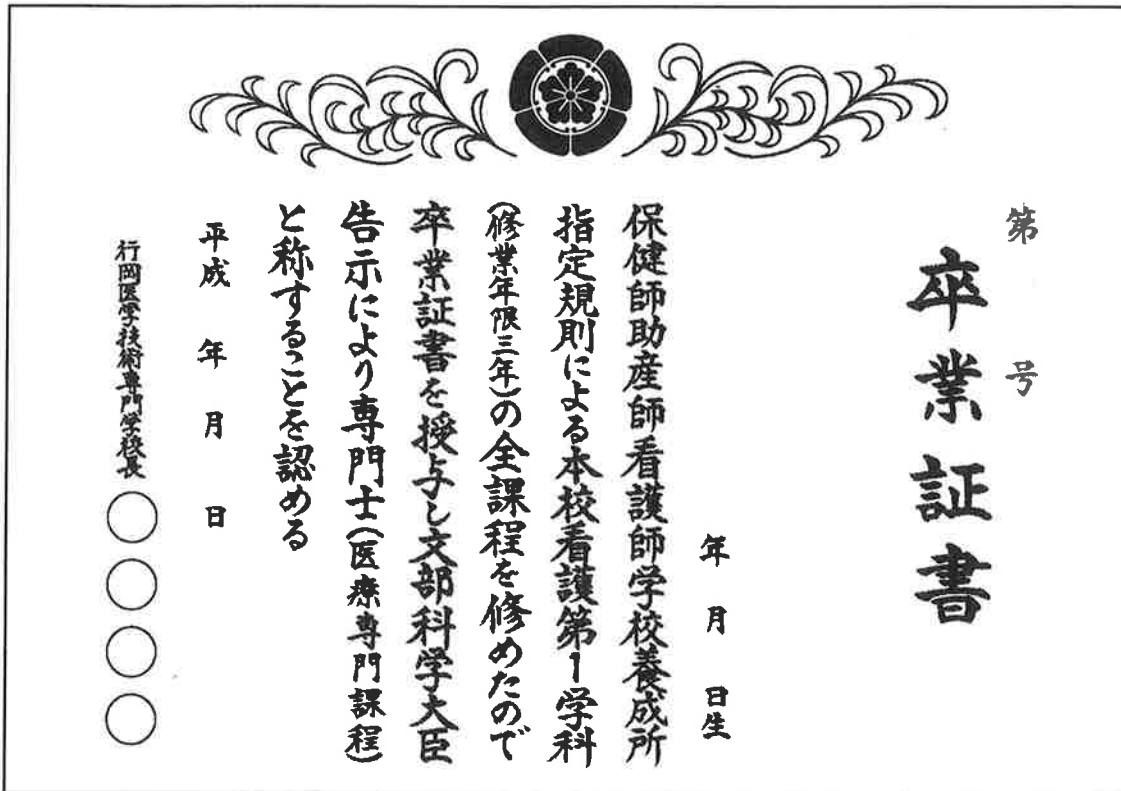 第 号
卒業証書
年 月 日生
保健師助産師看護師学校養成所
指定規則による本校看護第1学科
(修業年限三年)の全課程を修めたので
卒業証書を授与し文部科学大臣
告示により専門士(医療専門課程)
と称することを認める
平成 年 月 日
行岡医学技術専門学校長 ○○○○